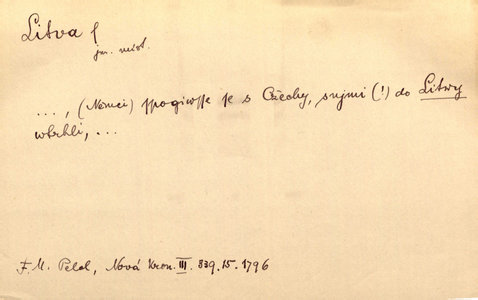 Litva f
jm. míst.
..., (Němci) spogiwsse se s Čzechy, s nimi (!) do Litwy
wtrhli, ...
F. M. Pelcl, Nová Kron. III. 839. 15. 1796